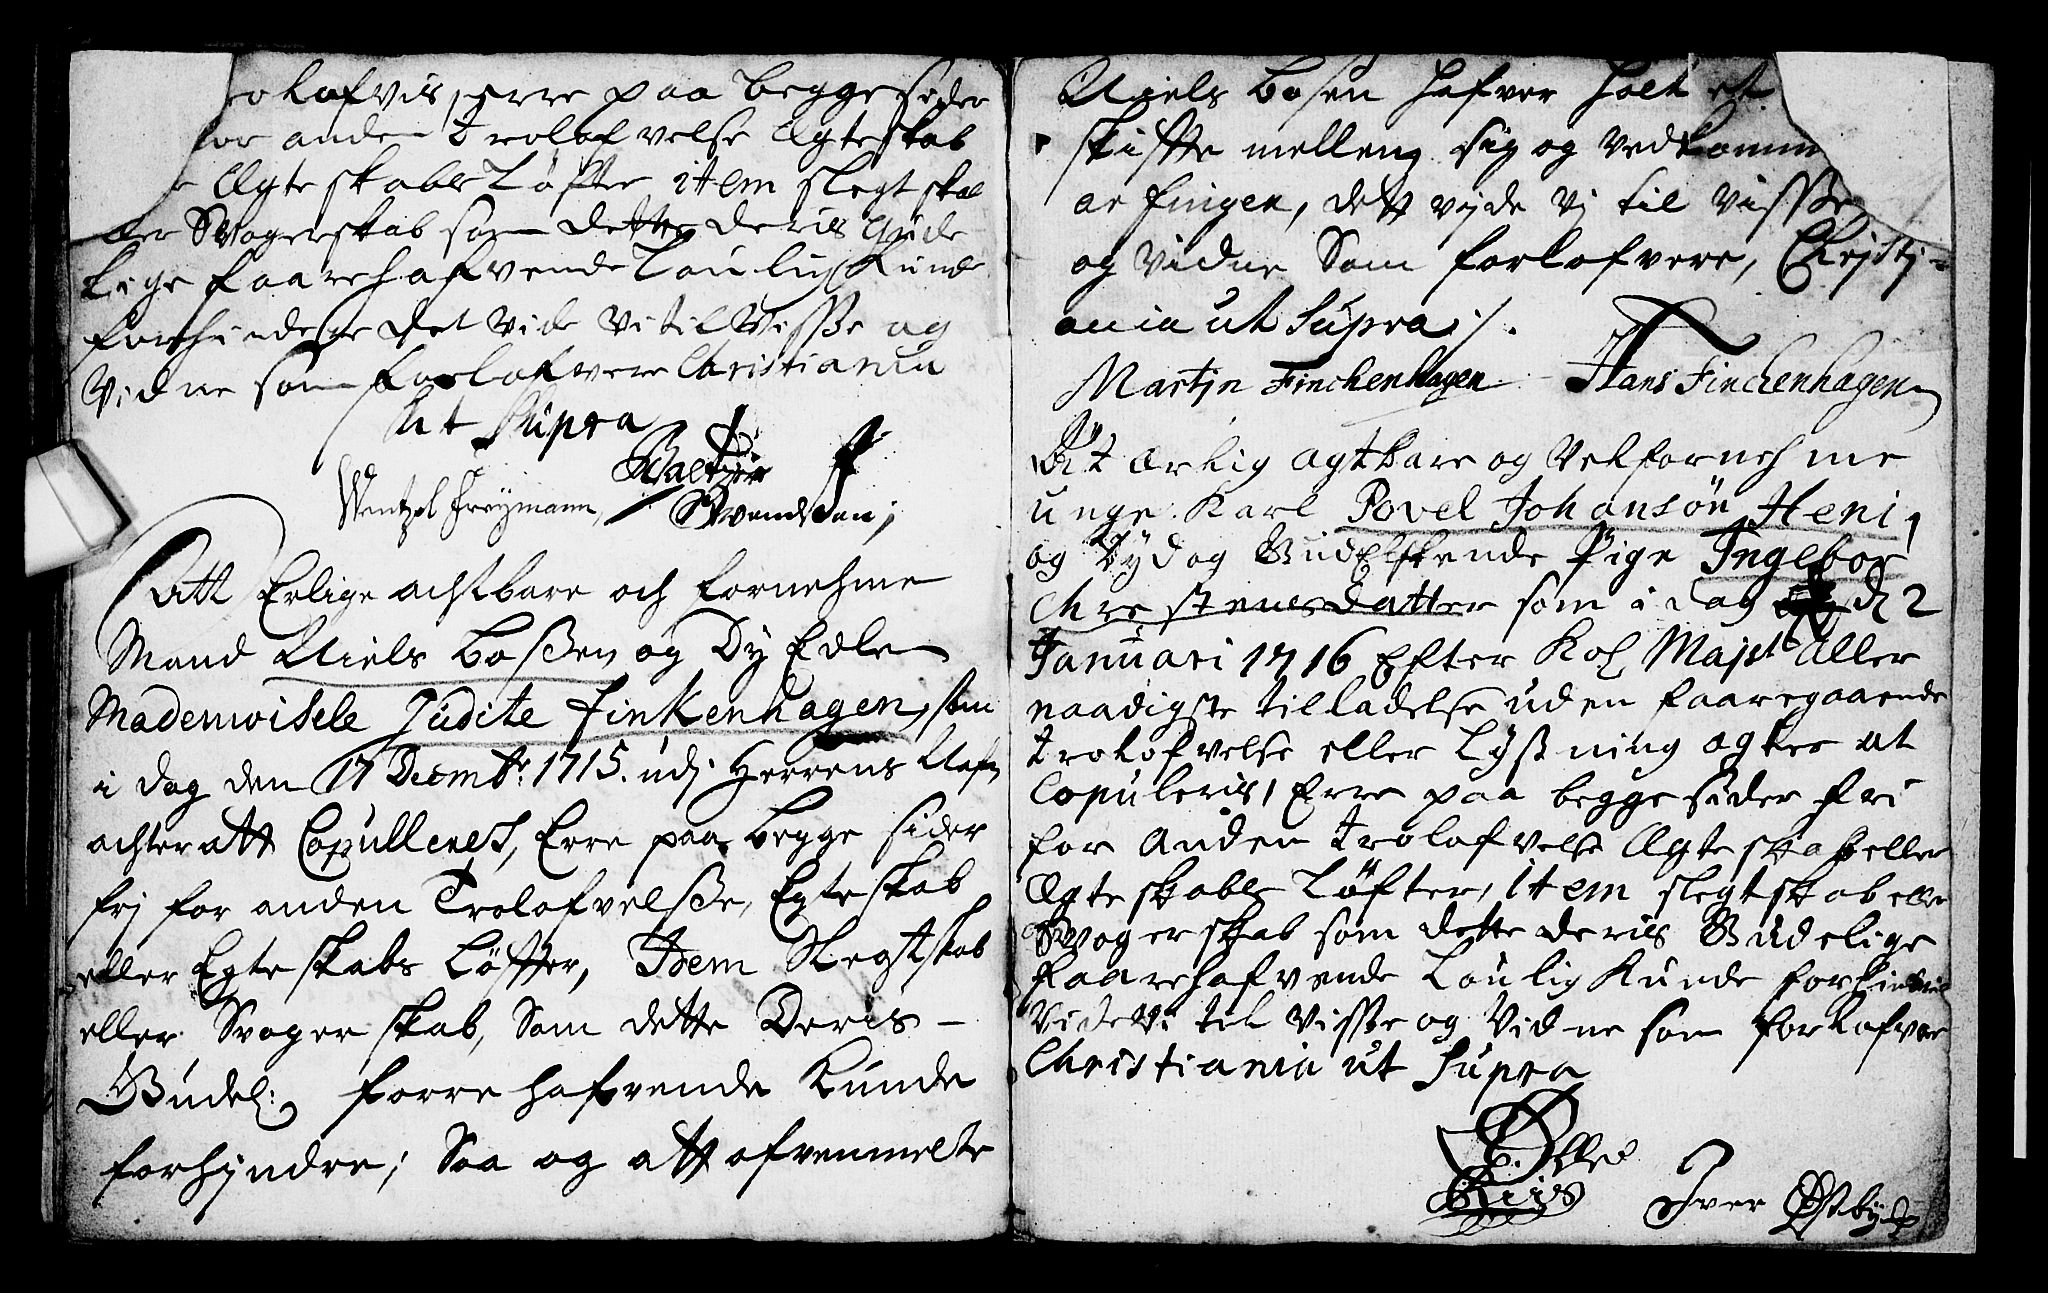 rolofvis, erre paa begge sider
for anden Trolofvelse Ægteskab
Ægteskabs Løffte, item slegtskab
Svogerskab som dette deris Gude
lige faarehafvende Loulig Kunde
forhindere det vide vi til Visse og
Vidne som forlofvere Christiania
ut Supra
Wentzel Freÿmann, Baltzer
Svendsen;
Att Erlige achtbare och fornehme
Mand Niels Boßen og Dy Edle
Mademoisele Judite Finkenhagen, som
i dag den 17 Decmbr: 1715. udj Herrens Nafn
achter att Copullerest, Erre paa begge sider
frj for anden Trolofvelße, Egteskab
eller Egteskabs Løffter, Item Slegtskab
eller Svogerskab, Som dette Deris
Gudel: forrehafvende Kunde
forhjndre; Saa og att ofvenmelte
Niels Bosen hafver holt et
skiffte mellem sig og vedkomm
arfinger, dett vide vj til visse
og vidne Som forlofvere, Christj-
ania ut Supra ./.
Martjn Finchenhagen Hans Finchenhagen
At ærlig agtbare og velfornehme
unge Karl Povel Johansøn Heni,
og Dyd og Gudelskende Pige Ingebor
Chrestensdatter som i dag d 2
Januari 1716 Efter Kol Majst Aller
naadigste tilladelse uden faaregaaende
trolofvelse eller Lysning agter at
Copuleris, Erre paa begge sider fri
for Anden trolofvelse Ægteskab eller
Ægteskabs Løfter, item slegtskab eller
Svogerskab som dette deris Gudelige
faarehafvende Loulig Kunde
Vide vi til Visse og Vidne som forlofvere
Christiania ut Supra
Riis Iver Østbÿe